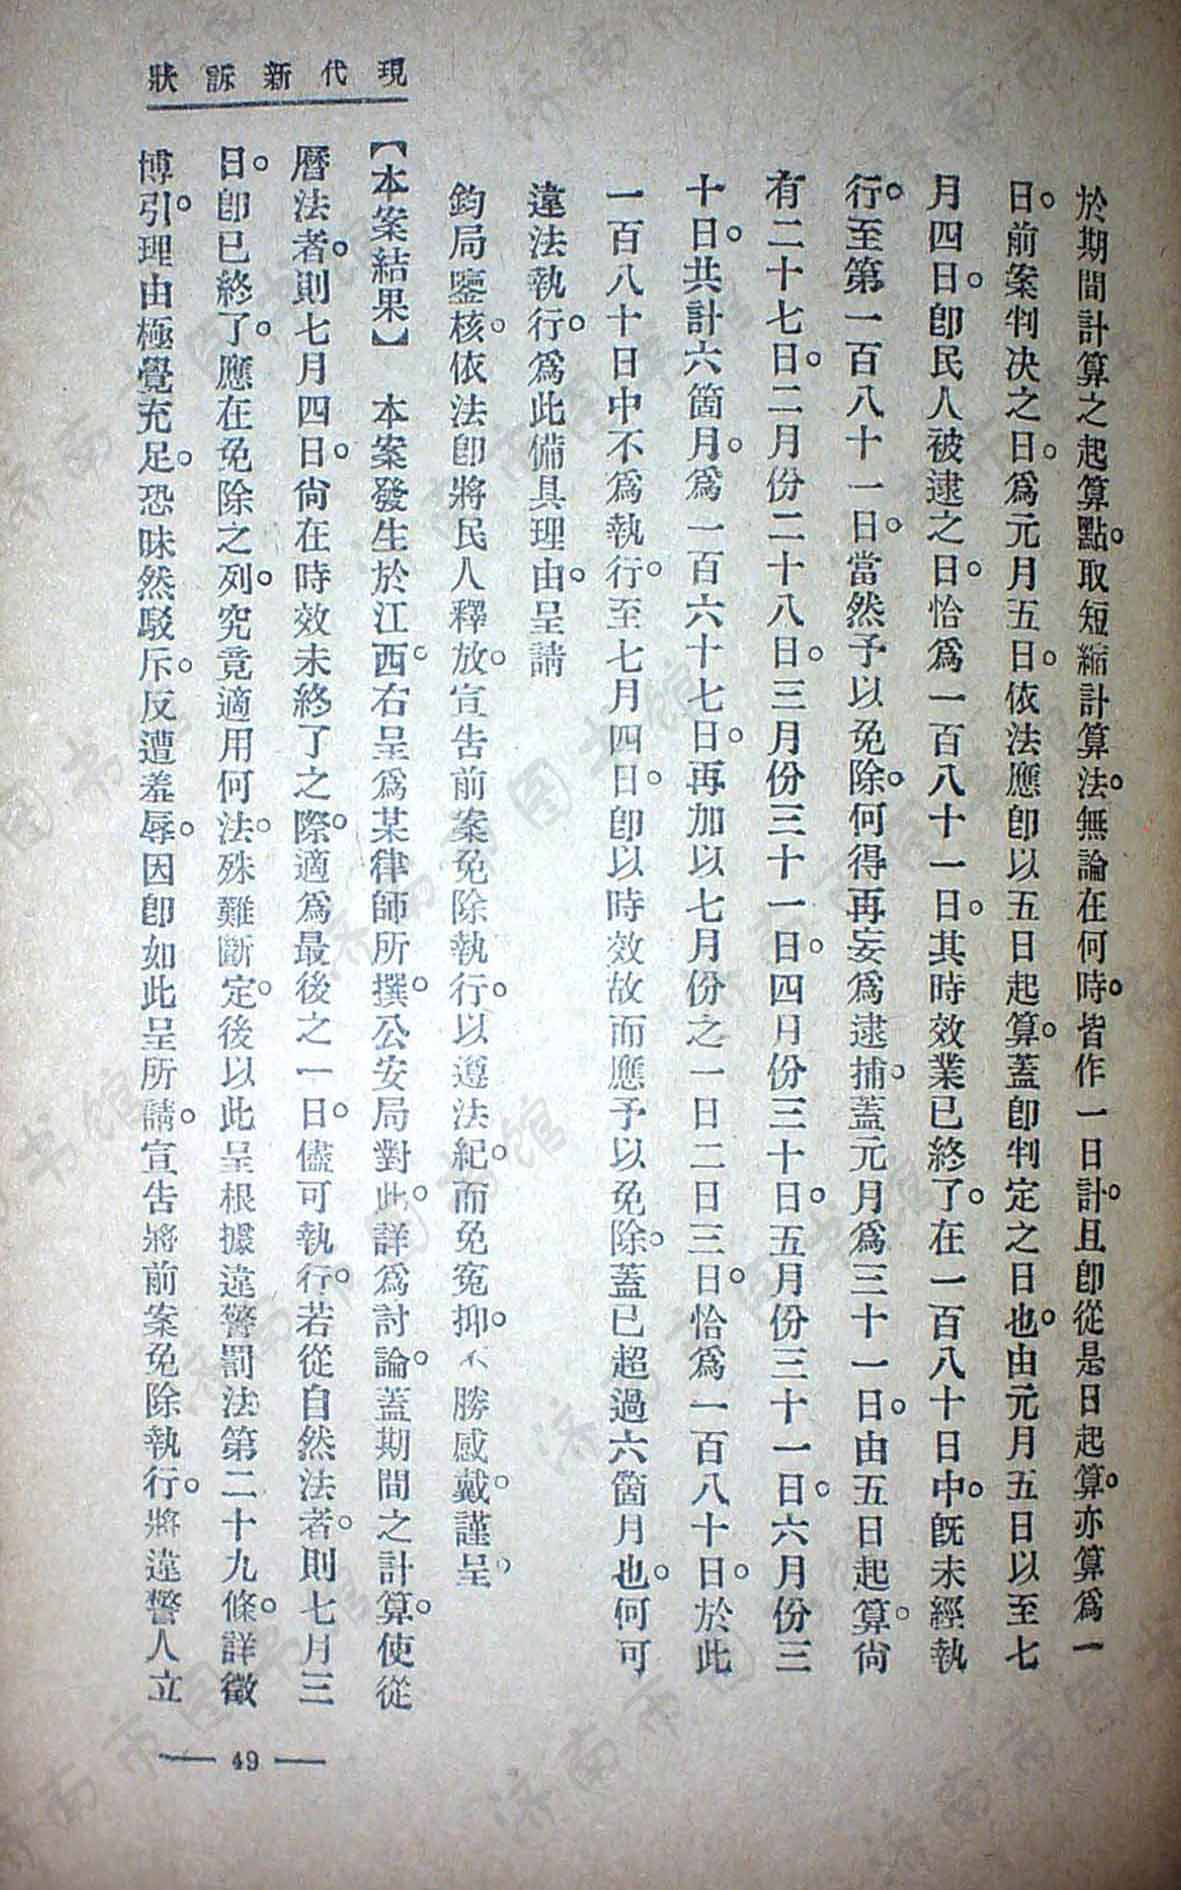 現代新訴狀
於期間計算之起算點。取短縮計算法。無論在何時。皆作一日計。且卽從是日起算。亦算爲一
日。前案判决之日。爲元月五日。依法應卽以五日起算。蓋卽判定之日也。由元月五日以至七
月四日。卽民人被逮之日。恰爲一百八十一日。其時效業已終了。在一百八十日中。旣未經執
行。至第一百八十一日。當然予以免除。何得再妄爲逮捕。蓋元月爲三十一日。由五日起算。尙
有二十七日。二月份二十八日。三月份三十一日。四月份三十日。五月份三十一日。六月份三
十日。共計六箇月。爲一百六十七日。再加以七月份之一日二日三日。恰爲一百八十日。於此
一百八十日中不爲執行。至七月四日。卽以時效故而應予以免除。蓋已超過六箇月也。何可
違法執行。爲此備具理由。呈請
鈞局鑒核。依法卽將民人釋放。宣告前案免除執行。以遵法紀。而免寃抑。不勝感戴。謹呈。
【本案結果】　本案發生於江西。右呈爲某律師所撰。公安局對此。詳爲討論。蓋期間之計算。使從
曆法者。則七月四日。尙在時效未終了之際。適爲最後之一日。儘可執行。若從自然法者。則七月三
日。卽已終了。應在免除之列。究竟適用何法。殊難斷定。後以此呈根據違警罰法第二十九條。詳徵
博引。理由極覺充足。恐昧然駁斥。反遭羞辱。因卽如此呈所請。宣告將前案免除執行。將違警人立
— 49 —